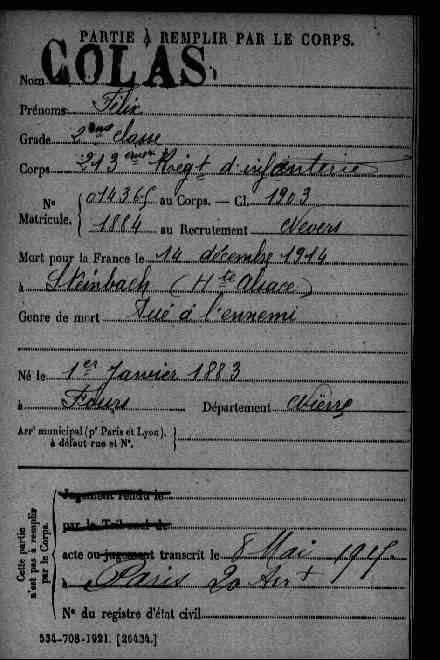 PARTIE À REMPLIR PAR LE CORPS.
Nom COLAS
Prénoms Félix
Grade 2ème classe
Corps 213ème Régt d'infanterie
Nº 014365 au Corps. — Cl. 1903
Matricule. 1884 au Recrutement Nevers
Mort pour la France le 14 décembre 1914
à Steinbach (Hte Alsace)
Genre de mort Tué à l'ennemi
Né le 1er Janvier 1883
à Fours Département Nièvre
Arrt municipal (pr Paris et Lyon),
à défaut rue et Nº.
Cette partie
n'est pas à remplir
par le Corps.
Jugement rendu le
par le Tribunal de
acte ou jugement transcrit le 8 Mai 1915
à Paris 20 Arrt
Nº du registre d'état civil
534-708-1921. [26434.]